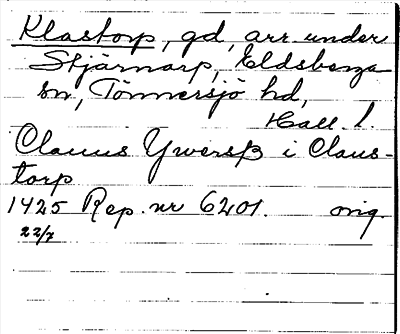 Klastorp, gd, arr. under
Stjärnarp, Eldsberga
sn, Tönnersjö hd,
Hall. l.
Clauus Ywerß i Claus-
torp
1425 Rep. nr 6201. orig.
22/7